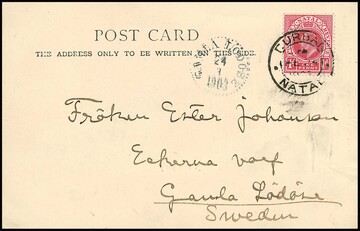 POST CARD
THE ADDRESS ONLY TO BE WRITTEN ON THIS SIDE.
NATAL
DURBAN
NATAL
24
Fröken Ester Johanson
Gamla Lödöse
Sweden